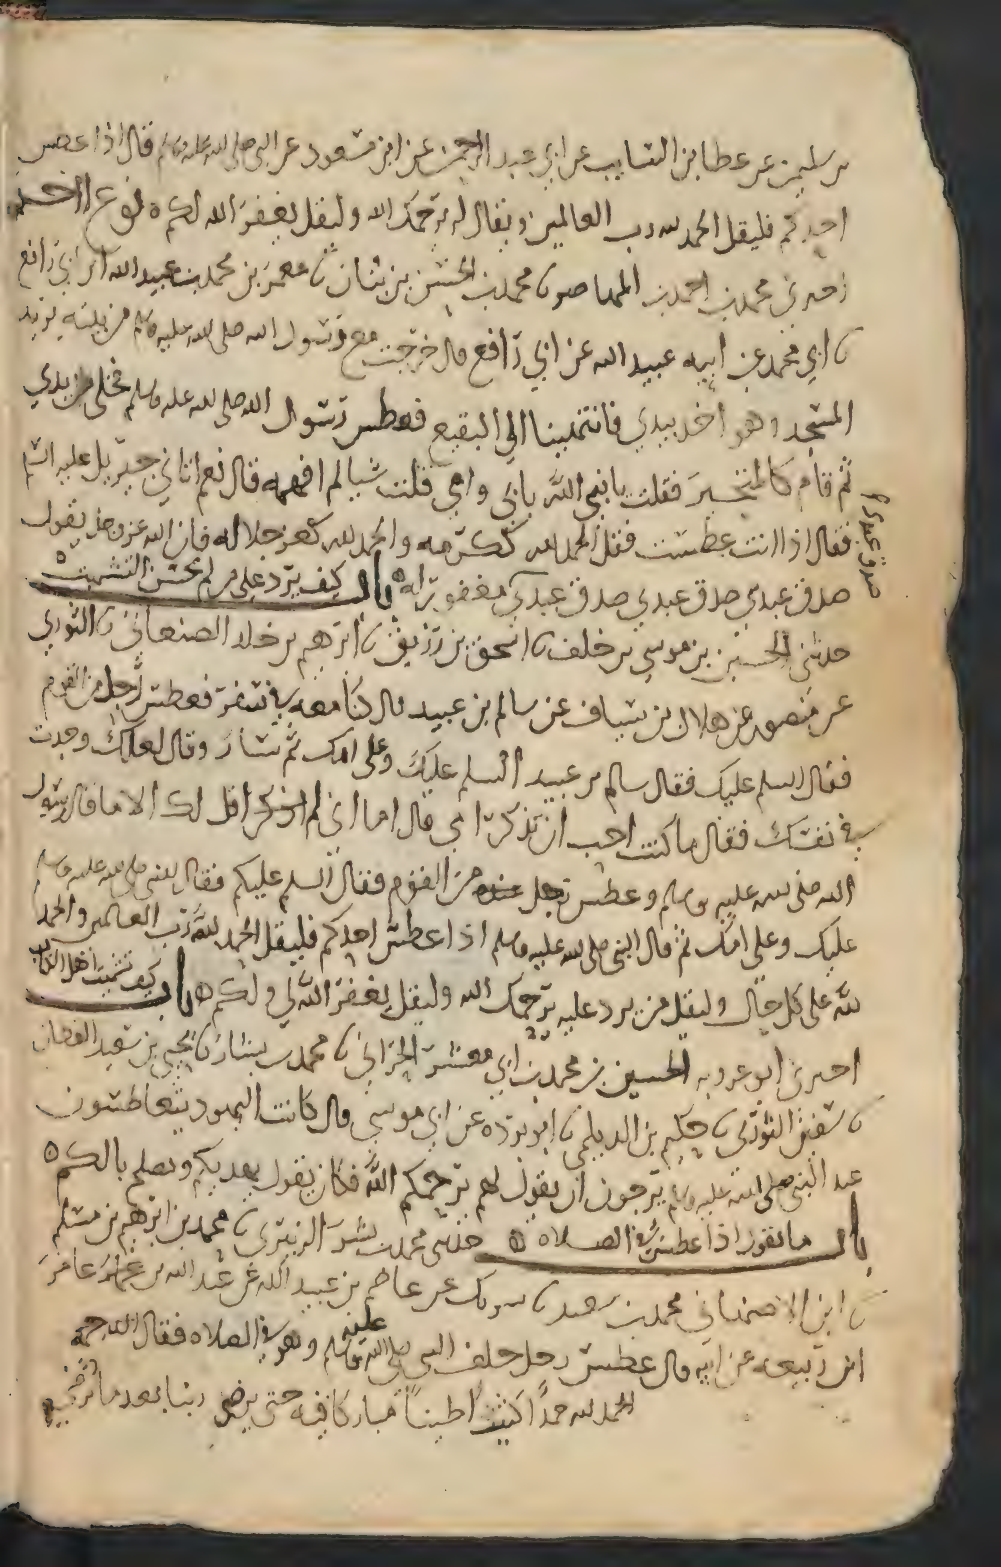 بن سليمن عن عطا بن السايب عن ابي عبد الرحمن عن ابن مسعود عن النبي صلى الله عليه وسلم قال اذا عطس
احدكم فليقل الحمد لله رب العالمين ويقال له يرحمك الله وليقل يغفر الله لكم نوع اخر
اخبرني محمد بن احمد بن المهاصر محمد بن الحسن بن بيان معمر بن محمد بن عبيد الله ابن ابي رافع
ابي محمد عن ابيه عبيد الله عن ابي رافع قال خرجت مع رسول الله صلى الله عليه وسلم من بيته يريد
المسجد وهو اخذ بيدي فانتهينا الى البقيع فعطس رسول الله صلى الله عليه وسلم فخلى من يدي
ثم قام كالمتحير فقلت يا نبي الله بابي وامي قلت شيا لم افهمه قال نعم اتاني جبريل عليه السلم
فقال اذا انت عطست فقل الحمد لله ككرمه والحمد لله كعز جلاله فان الله عز وجل يقول
صدق عبدي صدق عبدي صدق عبدي مغفور له باب كيف يرد على من لم يحسن التشميت
صدق عبدي
حدثني الحسين بن موسى بن خلف اسحق بن رزيق ابرهيم بن خلد الصنعاني الثوري
عن منصور عن هلال بن يساف عن سالم بن عبيد قال كنا معه في سفر فعطس رجل من القوم
فقال السلم عليك فقال سالم بن عبيد السلم عليك وعلى امك ثم سار وقال لعلك وجدت
في نفسك فقال ما كنت احب ان تذكر امي قال اما اني لم اقل لك الا ما قال رسول
الله صلى الله عليه وسلم وعطس رجل عنده من القوم فقال السلم عليكم فقال النبي صلى الله عليه وسلم
عليك وعلى امك ثم قال النبي صلى الله عليه وسلم اذا عطس احدكم فليقل الحمد لله رب العالمين والحمد
لله على كل حال وليقل من يرد عليه يرحمك الله وليقل يغفر الله لي ولكم باب كيف تشميت اهل الكتاب
اخبرني ابو عروبه الحسين بن محمد بن ابي معشر الحراني محمد بن بشار يحيى بن سعيد القطان
سفين الثوري حكيم بن الديلمي ابو برده عن ابي موسى قال كانت اليهود يتعاطسون
عند النبي صلى الله عليه وسلم يرجون ان يقول لهم يرحمكم الله فكان يقول يهديكم ويصلح بالكم
باب ما يقول اذا عطس في الصلاه حدثني محمد بن بشر الزبيري محمد بن ابرهيم بن مسلم
ابن الاصبهاني محمد بن سعيد شريك عن عاصم بن عبيد الله عن عبد الله بن عامر
ابن ربيعه عن ابيه قال عطس رجل خلف النبي صلى الله عليه وسلم وهو في الصلاه فقال
الحمد لله حمدا كثيرا طيبا مباركا فيه حتى يرضى ربنا بعد ما يرضى